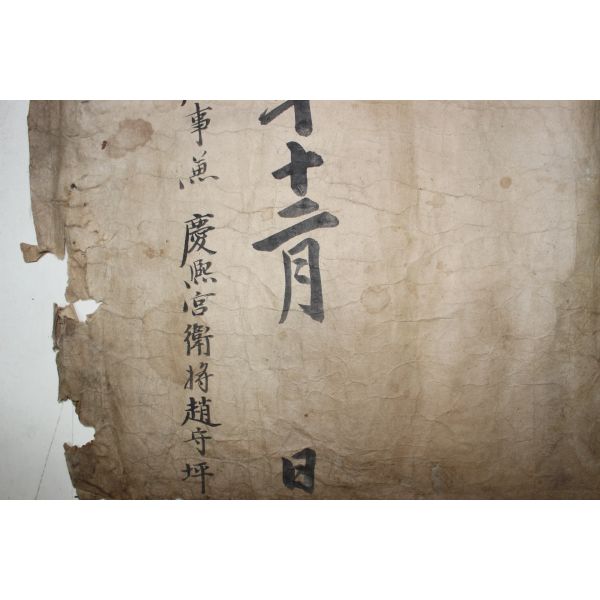 年十二月 日
事兼 慶熙宮衛將趙守坪